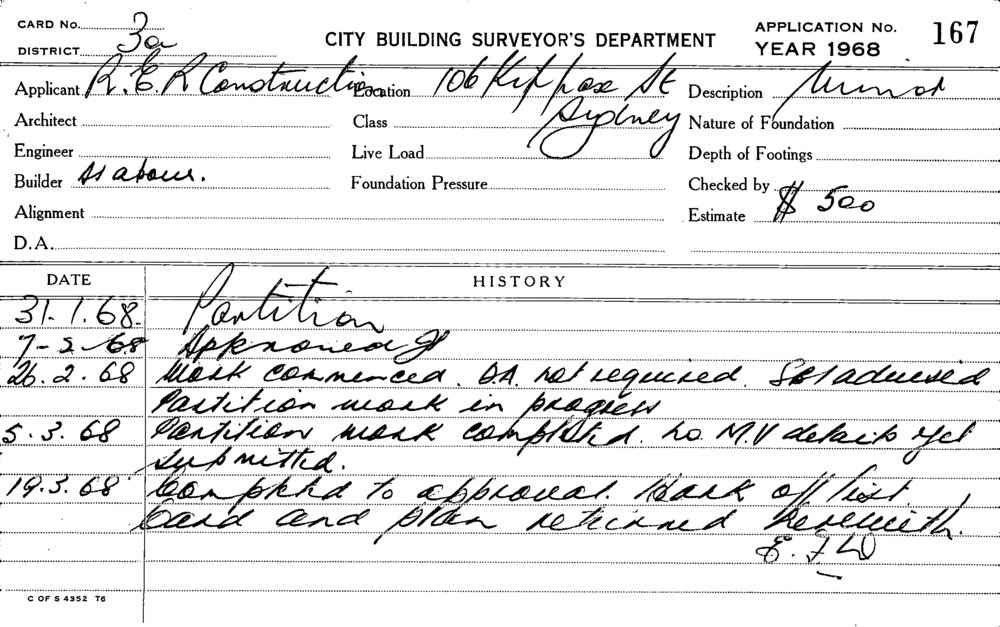 CARD No.
DISTRICT 3a
CITY BUILDING SURVEYOR'S DEPARTMENT
APPLICATION No. 167
YEAR 1968
Applicant R.E.R Construction Location 106 Kippax St Sydney Description Minor
Architect Class Nature of Foundation
Engineer Live Load Depth of Footings
Builder Labour. Foundation Pressure Checked by
Alignment Estimate $ 500
D.A.
DATE HISTORY
31.1.68. Partition
7-2-68 Approved
26.2.68 Work commenced. D.A. not required. advised
Partition work in progress
5.3.68 Partition work completed. No. M.V details yet
submitted.
19.3.68 Completed to approval. Mark off list
Card and plan returned herewith.
E.F.W
C OF S 4352 T6